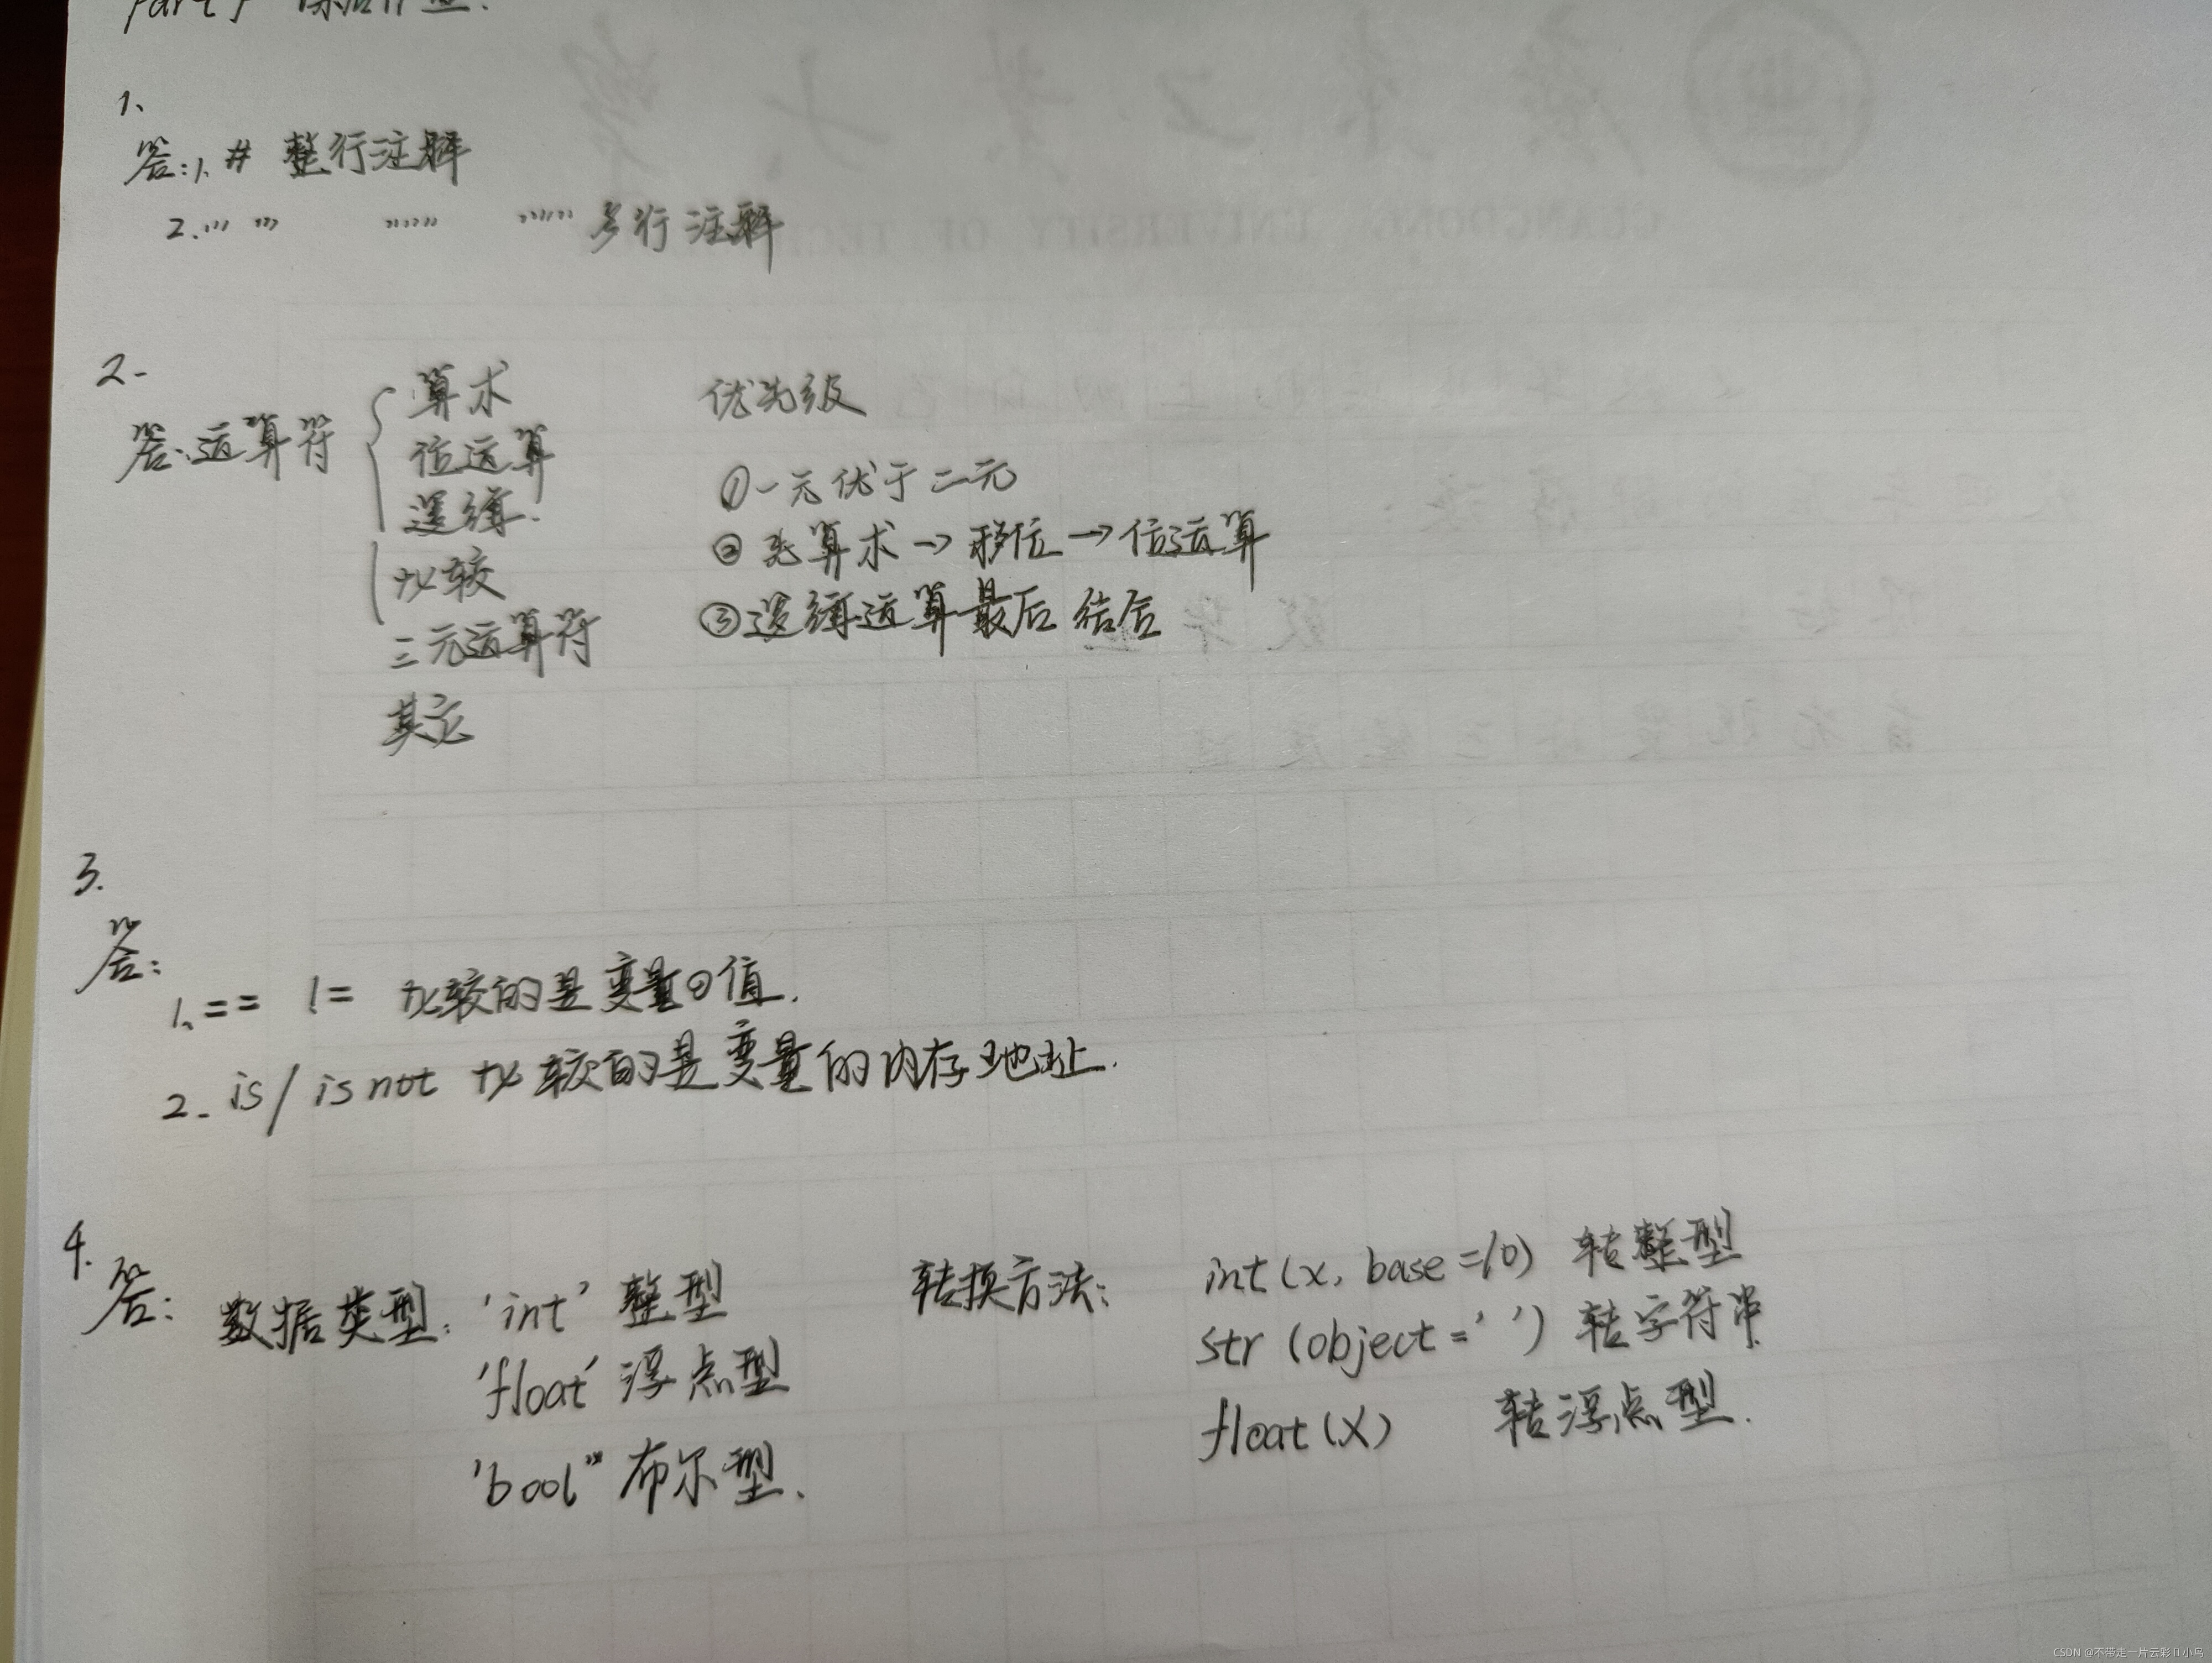 Part1 课后作业.
1、
答:1、# 整行注解
2. ''' ''' """ """ 多行注解
2.
答:运算符 算术 优先级
位运算 ①一元优于二元
逻辑. ②先算术→移位→位运算
比较 ③逻辑运算最后结合
三元运算符
其它
3.
答:
1、== != 比较的是变量的值.
2. is/is not 比较的是变量的内存地址.
4.
答: 数据类型: 'int' 整型 转换方法: int(x, base=10) 转整型
'float' 浮点型 str(object=' ') 转字符串
'bool" 布尔型. float(X) 转浮点型.
CSDN @不带走一片云彩 小鸟